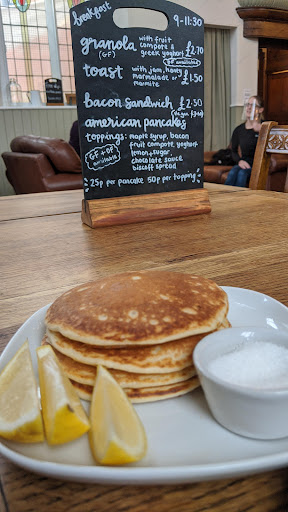 breakfast 9-11:30
granola with fruit compote & greek yoghurt £2.70
(GF) GF available
toast with jam, honey marmalade or marmite £1.50
bacon sandwich £2.50
american pancakes
toppings: maple syrup, bacon
fruit compote, yoghurt
lemon+sugar
chocolate sauce
biscoff spread
GF + DF available
25p per pancake 50p per topping